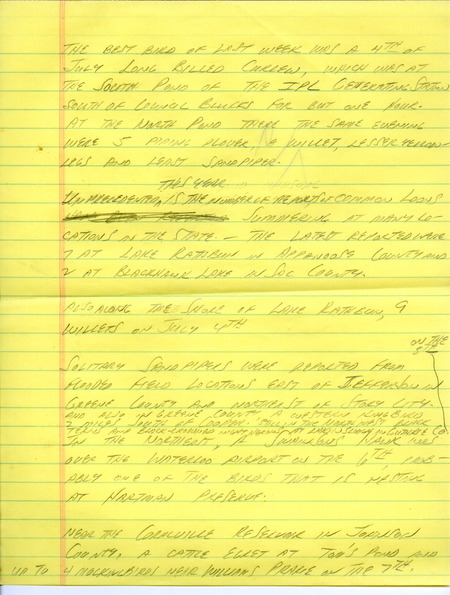 THE BEST BIRD OF LAST WEEK WAS A 4TH OF
JULY LONG BILLED CURLEW, WHICH WAS AT
THE SOUTH POND OF THE IPL GENERATING STATION
SOUTH OF COUNCIL BLUFFS FOR BUT ONE HOUR.
AT THE NORTH POND THERE THE SAME EVENING
WERE 5 PIPING PLOVER, A WILLET, LESSER YELLOW-
LEGS AND LEAST SANDPIPER.
THIS YEAR
UNPRECEDENTED, IS THE NUMBER OF REPORTS OF COMMON LOONS
SUMMERING AT MANY LO-
CATIONS IN THE STATE - THE LATEST REPORTED WERE
7 AT LAKE RATHBUN IN APPANOOSE COUNTY AND
2 AT BLACKHAWK LAKE IN SAC COUNTY.
ALSO ALONG THE SHORE OF LAKE RATHBUN, 9
WILLETS ON JULY 4TH
ON THE
5TH
SOLITARY SANDPIPERS WERE REPORTED FROM
FLOODED FIELD LOCATIONS EAST OF JEFFERSON IN
GREENE COUNTY AND NORTHEAST OF STORY CITY.
AND ALSO IN GREENE COUNTY A WESTERN KINGBIRD
2 MILES SOUTH OF COOPER. STILL IN THE NORTHWEST, BLACK
TERN AND BLACK-CROWNED NIGHT HERON AT SLOUGH IN GUTHRIE CO.
IN THE NORTHEAST, A SWAINSONS HAWK WAS
OVER THE WATERLOO AIRPORT ON THE 6TH, PROB-
ABLY ONE OF THE BIRDS THAT IS NESTING
AT HARTMAN PRESERVE.
NEAR THE CORALVILLE RESERVOIR IN JOHNSON
COUNTY, A CATTLE EGRET AT TOM'S POND AND
UP TO 4 MOCKINGBIRDS NEAR WILLIAMS PRAIRIE ON THE 7TH.